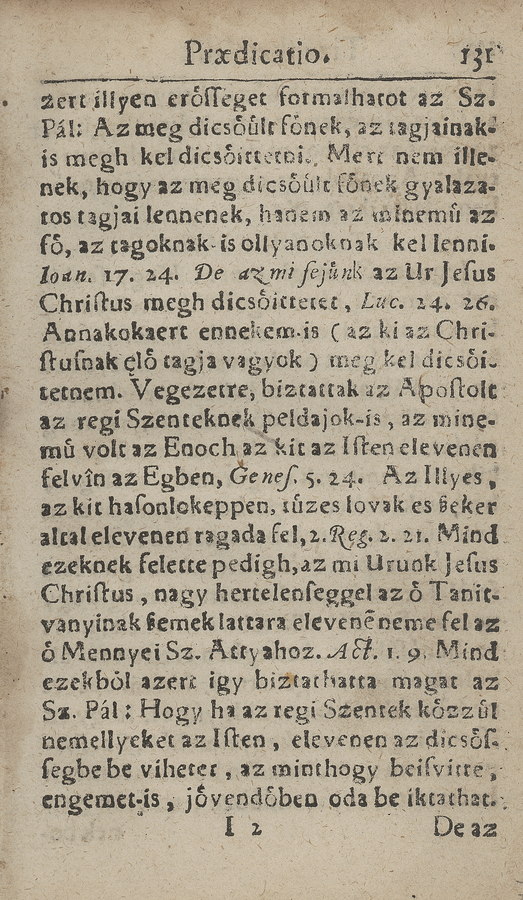 Prædicatio. 131
zert illyen erősseget formalhatot az Sz.
Pál: Az meg dicsőült főnek, az tagjainak-
is megh kel dicsőittetni. Mert nem ille-
nek, hogy az meg dicsőült főnek gyalaza-
tos tagjai lennenek, hanem az minemű az
fő, az tagoknak-is ollyanoknak kel lenni.
Ioan. 17. 24. De az mi fejünk az Ur Jesus
Christus megh dicsőittetet, Luc. 24. 26.
Annakokaert ennekem-is ( az ki az Chri-
stusnak elő tagja vagyok ) meg kel dicsői-
tetnem. Vegezetre, biztattak az Apostolt
az regi Szenteknek peldajok-is, az mine-
mű volt az Enoch az kit az Isten elevenen
felvîn az Egben, Genes. 5. 24. Az Illyes,
az kit hasonlokeppen, tüzes lovak es ßeker
altal elevenen ragada fel, 2. Reg. 2. 21. Mind
ezeknek felette pedigh, az mi Urunk Jesus
Christus, nagy hertelenseggel az ő Tanit-
vanyinak ßemek lattara elevenẽ neme fel az
ő Mennyei Sz. Attyahoz. Act. 1. 9. Mind
ezekből azert igy biztathatta magat az
Sz. Pál: Hogy ha az regi Szentek közzül
nemellyeket az Isten, elevenen az dicsős-
segbe be vihetet, az minthogy beisvitte,
engemet-is, jövendőben oda be iktathat.
I 2 De az